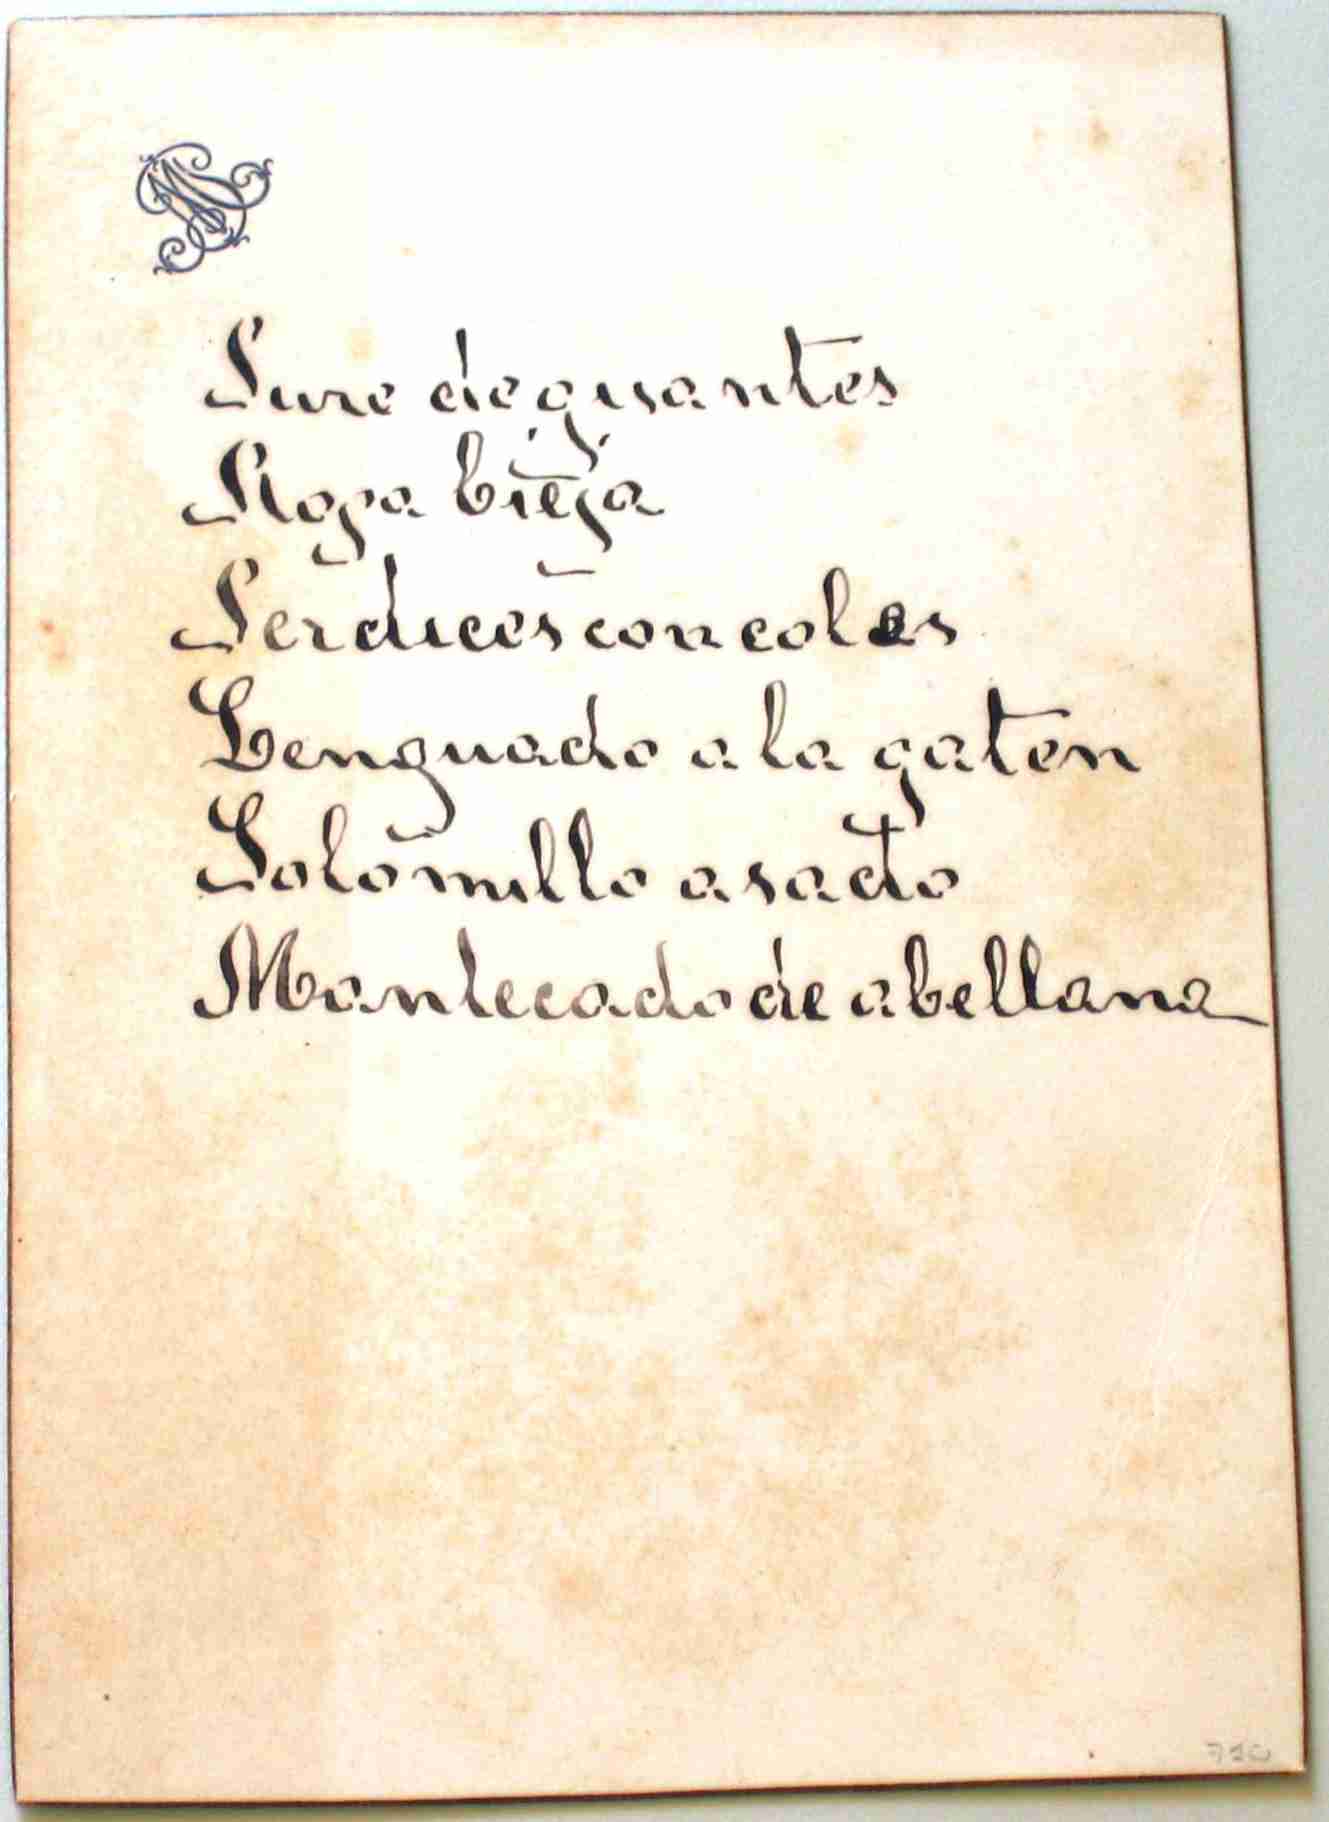 Pure de gisantes
Ropa bieja
Perdices con coles
Lenguado a la gaten
Solomillo asado
Mantecado de abellana
710